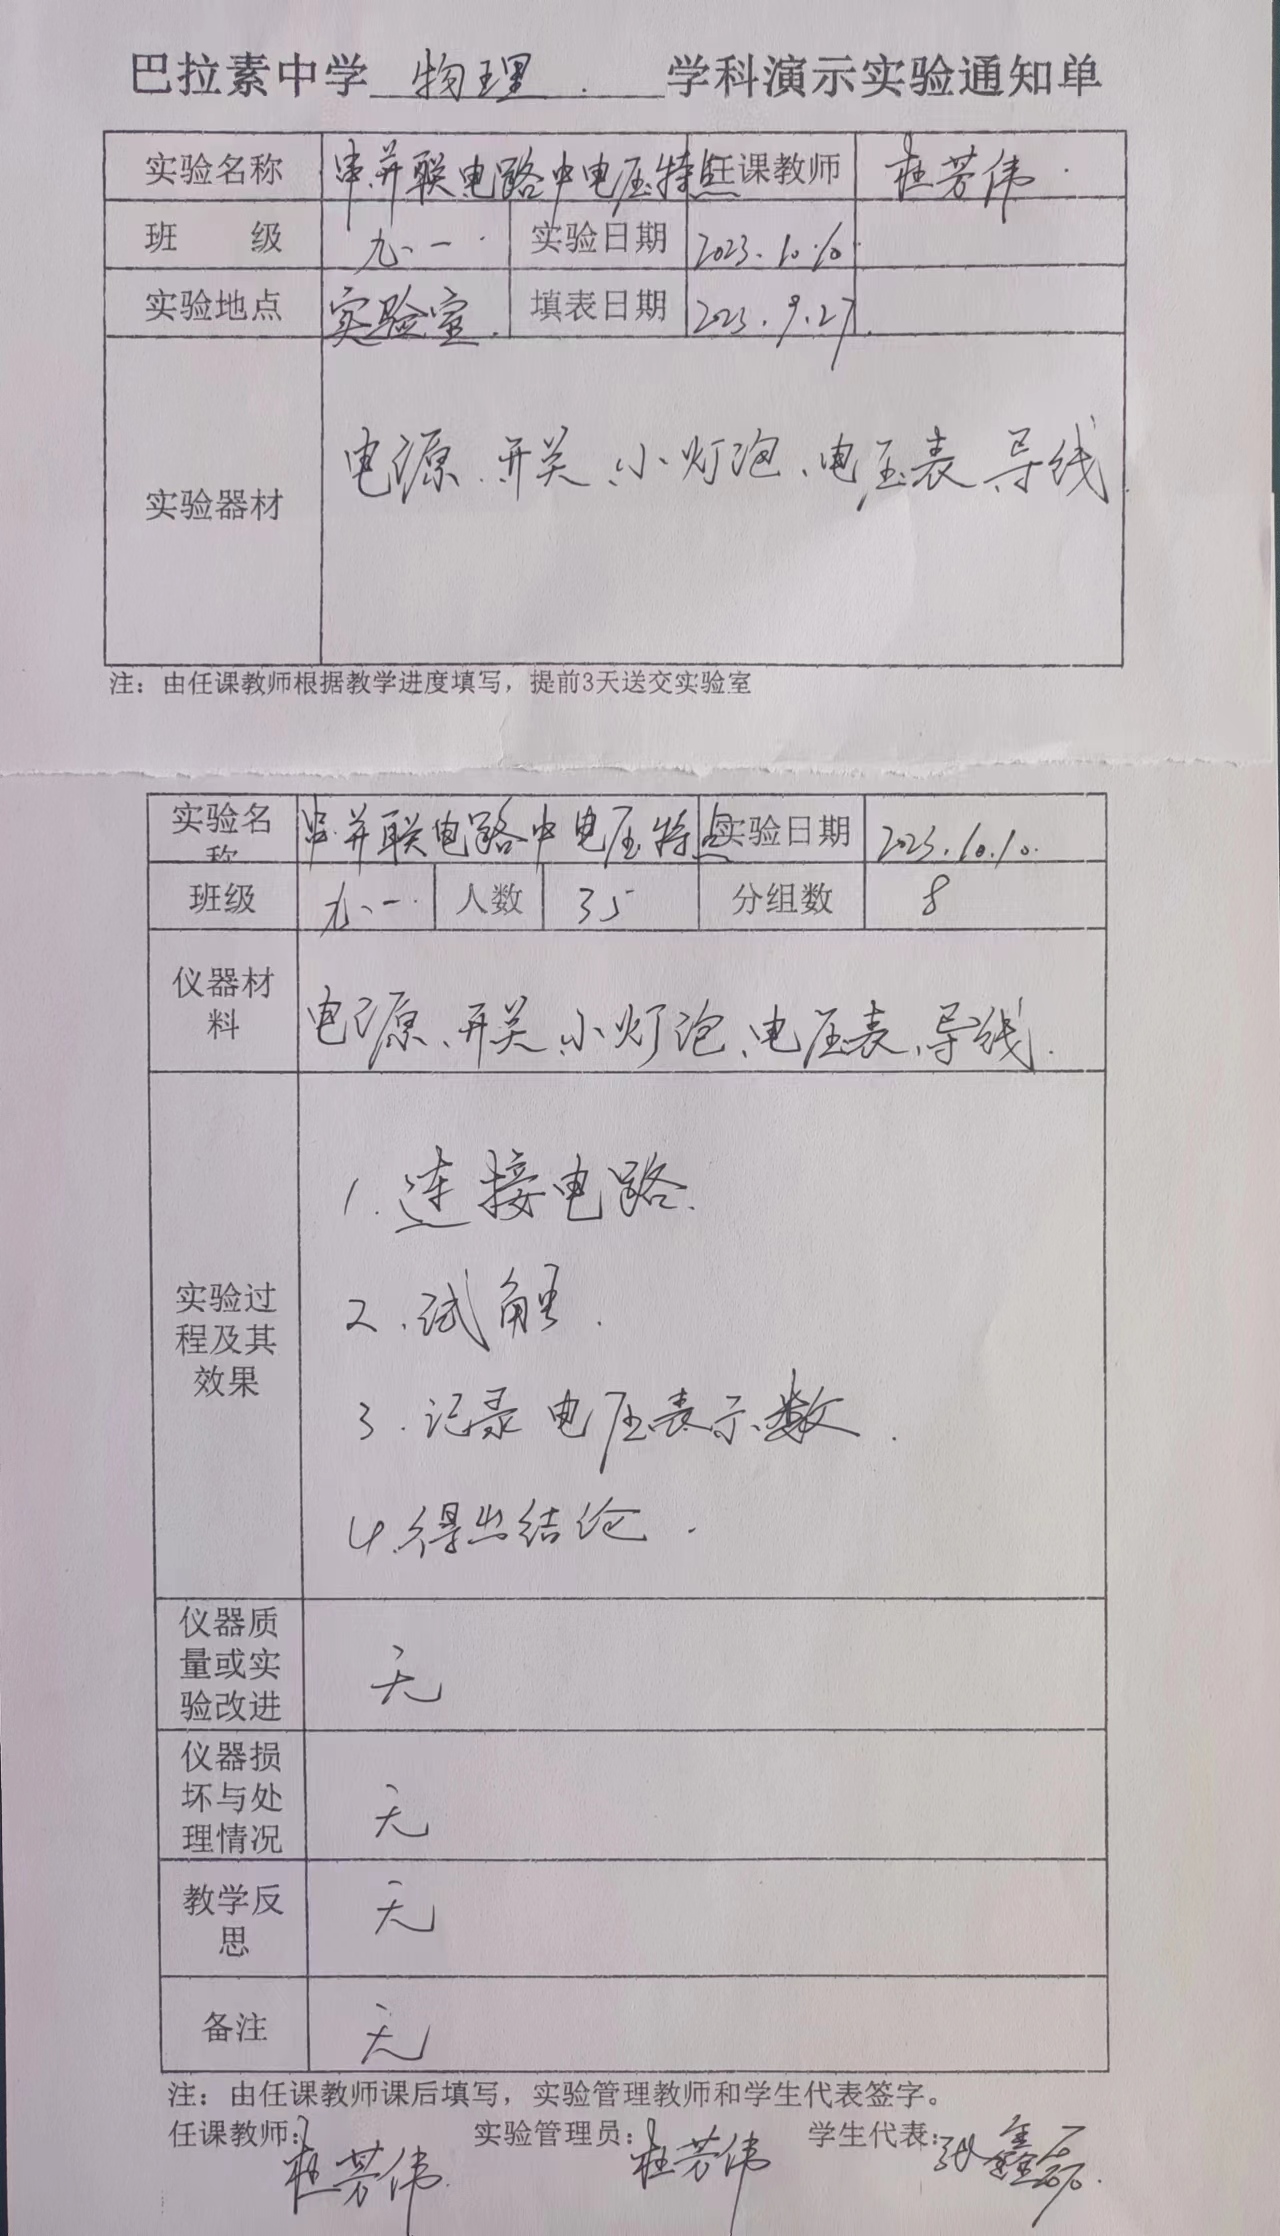 巴拉素中学 物理 学科演示实验通知单
实验名称 串并联电路中电压特点 任课教师 杜芳伟
班 级 九、一 实验日期 2023.10.10
实验地点 实验室 填表日期 2023.9.27
实验器材 电源、开关、小灯泡、电压表、导线
注：由任课教师根据教学进度填写，提前3天送交实验室
实验名称 串并联电路中电压特点 实验日期 2023.10.10.
班级 九、一 人数 35 分组数 8
仪器材料 电源、开关、小灯泡、电压表、导线.
实验过程及其效果
1.连接电路.
2.试触.
3.记录电压表示数.
4.得出结论.
仪器质量或实验改进 无
仪器损坏与处理情况 无
教学反思 无
备注 无
注：由任课教师课后填写，实验管理教师和学生代表签字。
任课教师：杜芳伟 实验管理员：杜芳伟 学生代表：张鑫磊